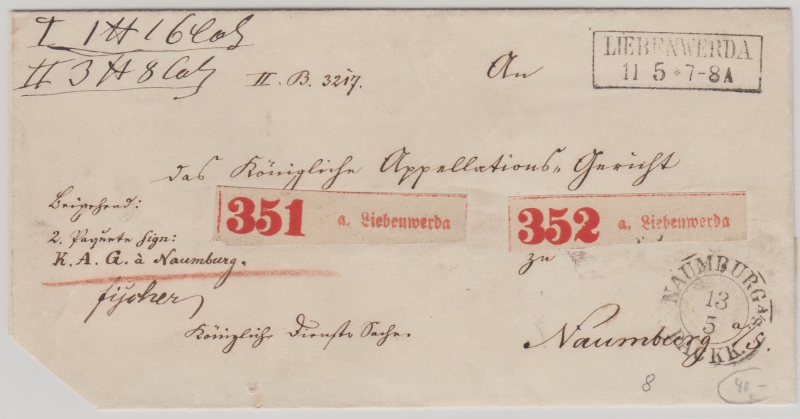 I 1 ℔ 16 Loth
II 3 ℔ 8 Loth
II. B. 3217.
An
LIEBENWERDA
11 5 * 7-8 A
das Königliche Appellations-Gericht
Beigehend:
2. Paquete sign:
K. A. G. à Naumburg.
fischer
351 a. Liebenwerda
352 a. Liebenwerda
zu
Naumburg a/S.
NAUMBURG A/S
13
5
PACKK.
Königliche Dienst Sache.
8
40,-